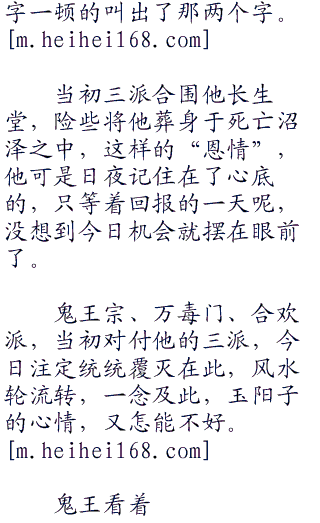 字一顿的叫出了那两个字。
[m.heihei168.com]
当初三派合围他长生
堂，险些将他葬身于死亡沼
泽之中，这样的“恩情”，
他可是日夜记住在了心底
的，只等着回报的一天呢，
没想到今日机会就摆在眼前
了。
鬼王宗、万毒门、合欢
派，当初对付他的三派，今
日注定统统覆灭在此，风水
轮流转，一念及此，玉阳子
的心情，又怎能不好。
[m.heihei168.com]
鬼王看着